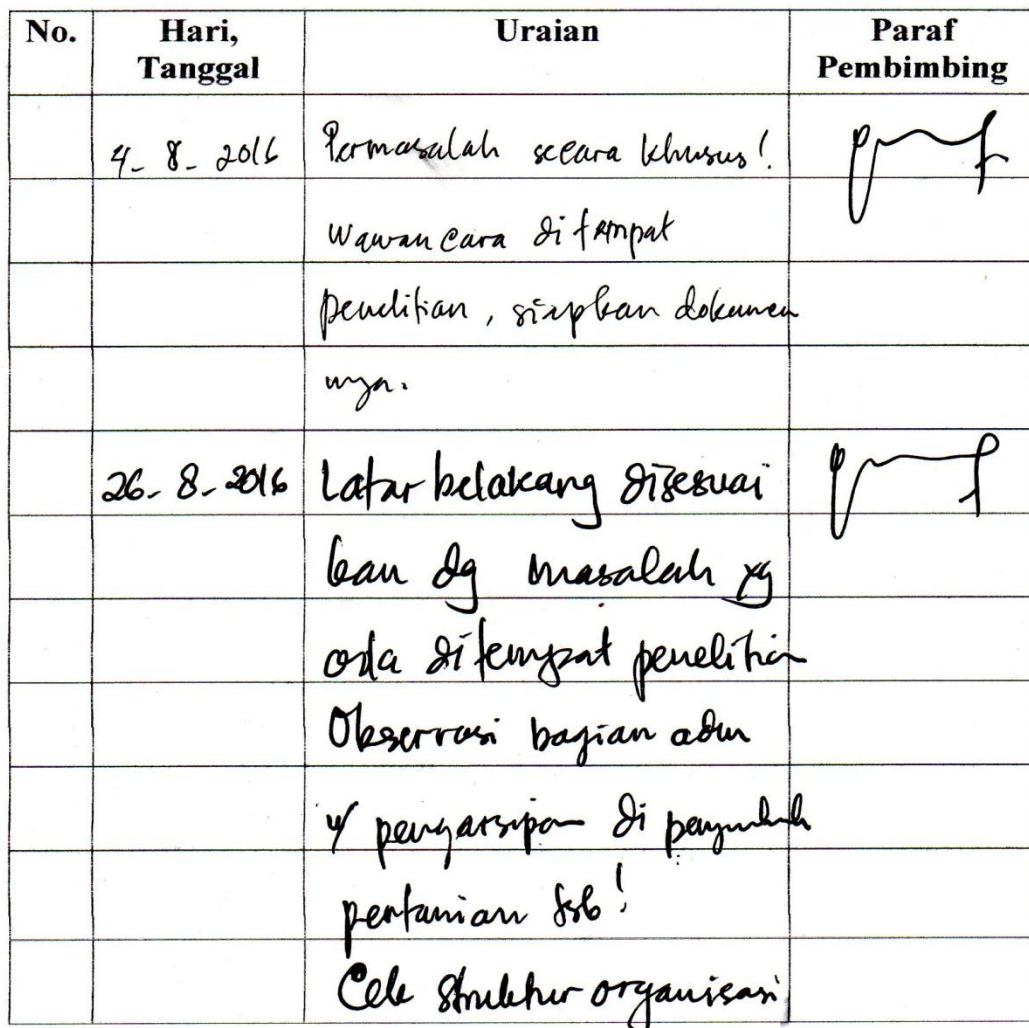 No. Hari, Tanggal Uraian Paraf Pembimbing
4-8-2016 Permasalah secara khusus!
wawancara ditempat
penelitian, siapkan dokumen
nya.
26-8-2016 Latar belakang disesuai
kan dg masalah yg
ada ditempat penelitian
Observasi bagian adm
u/ pengarsipan di penyuluh
pertanian tsb!
Cek struktur organisasi